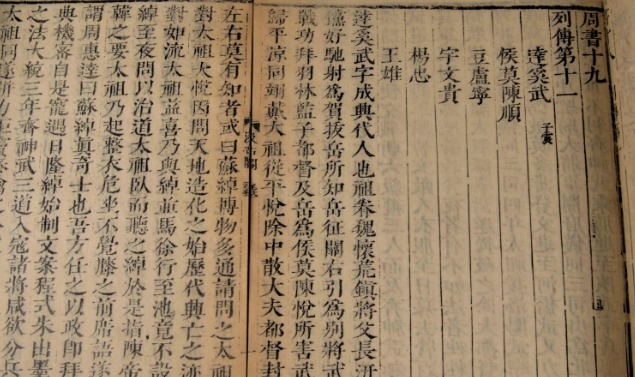 周書十九
列傳第十一
達奚武 子震
侯莫陳順
豆盧寧
宇文貴
楊忠
王雄
達奚武字成興代人也祖眷魏懷荒鎮將父長汧
儻好馳射為賀拔岳所知岳征關右引為別將武
戰功拜羽林監子都督及岳為侯莫陳悅所害武
歸平涼同翊戴太祖從平悅除中散大夫都督封
汲古閣
左右莫有知者或曰蘇綽博物多通請問之太祖
對太祖大悅因問天地造化之始歷代興亡之迹
對如流太祖益喜乃與綽並馬徐行至池竟不設
綽至夜問以治道太祖臥而聽之綽於是指陳帝
韓之要太祖乃起整衣危坐不覺膝之前席語遂
謂周惠達曰蘇綽真奇士也吾方任之以政即拜
典機密自是寵遇日隆綽始制文案程式朱出墨
之法大統三年齊神武三道入寇諸將咸欲分兵
太祖同遂